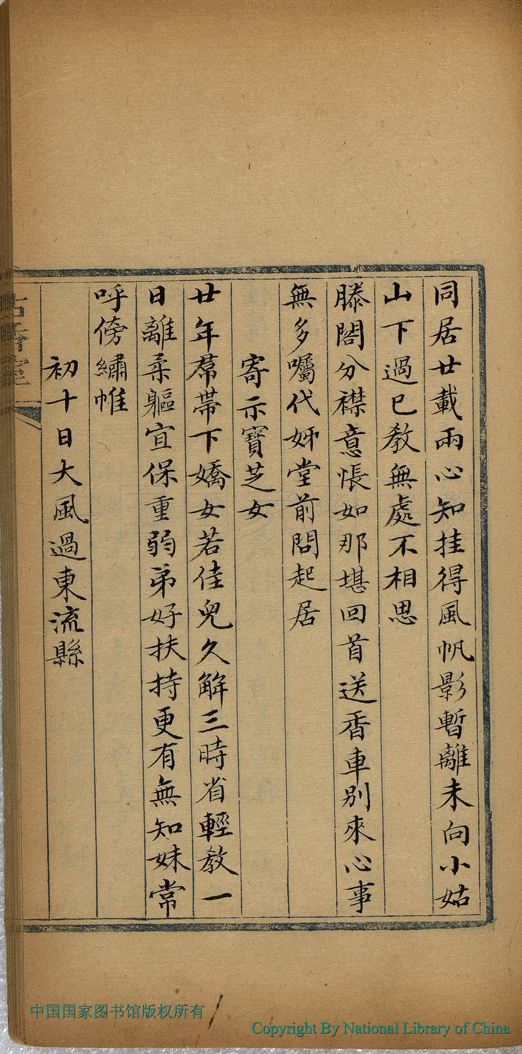 同居廿載兩心知挂得風帆影暫離未向小姑
山下過已教無處不相思
滕閤分襟意悵如那堪回首送香車別來心事
無多囑代姊堂前問起居
寄示寶芝女
廿年膝帶下嬌女若佳兒久解三時省輕教一
日離柔軀宜保重弱弟好扶持更有無知妹常
呼傍繡帷
初十日大風過東流縣
中国国家图书馆版权所有
Copyright By National Library of China